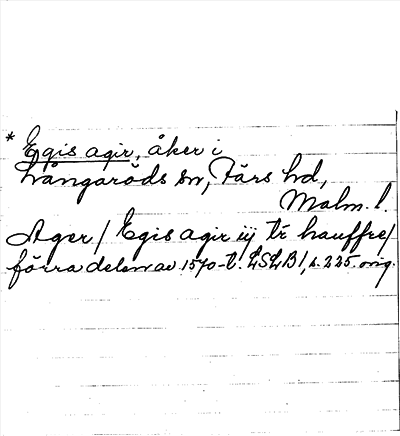 * Egis agir, åker i
Långaröds sn, Färs hd,
Malm. l.
Ager / Egis agir iij tr hauffre /
förra delen av 1570-t. LSLB 1, s. 225. orig.